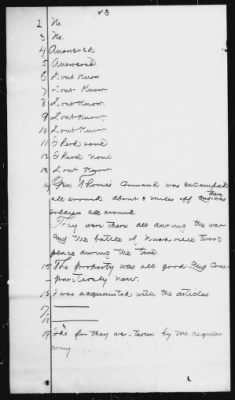 2 No
3 No.
4 Answered
5 Answered
6 Dont Know
7 Dont Know
8 Dont Know.
9 Dont Know.
10 Dont Know
11 I Recd none
12 I Recd none
13 Dont Know
Genl Thomas Command was encamped
all around about 3 miles off there
all around
They were there all during the war
and the battle of Nashville took
place during the time
15 The property was all good and com-
now.
16 I was acquainted with the articles
17
18
19 the was taken by the regular
army